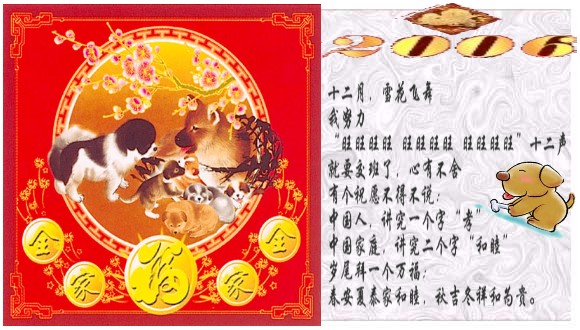 全 家 福 家 全
2006
十二月，雪花飞舞
我努力
“旺旺旺旺 旺旺旺旺 旺旺旺旺”十二声
就要交班了，心有不舍
有个祝愿不得不说：
中国人，讲究一个字“孝”
中国家庭，讲究二个字“和睦”
岁尾拜一个万福：
春安夏泰家和睦，秋吉冬祥和为贵。